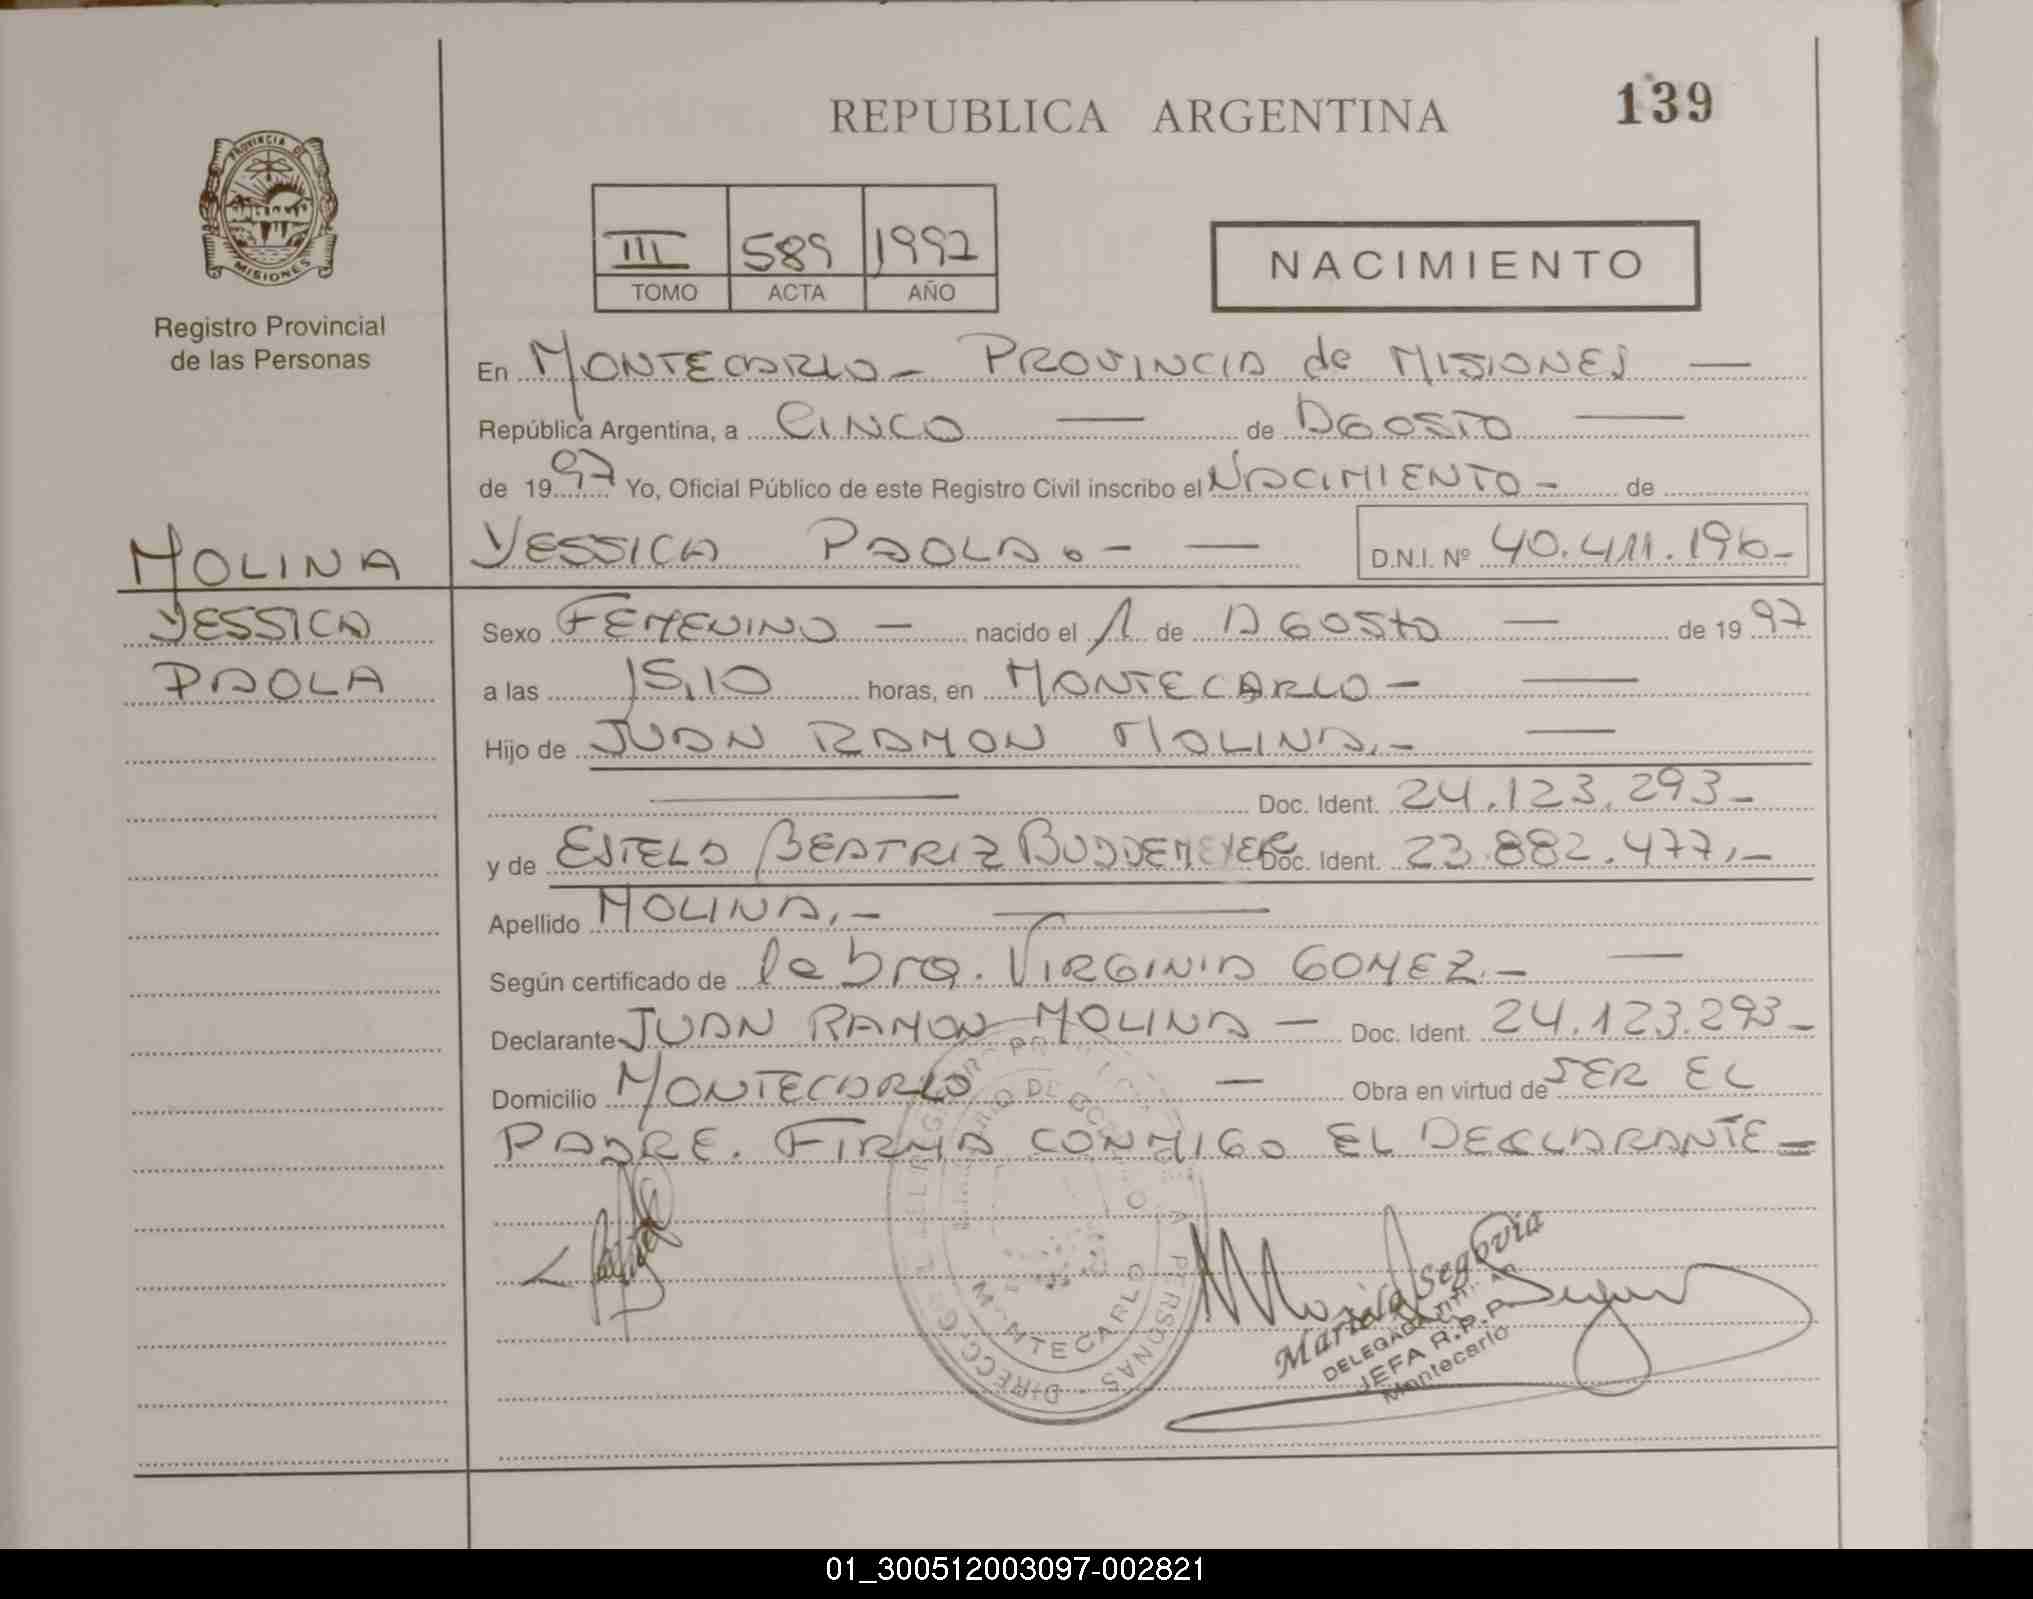 REPUBLICA ARGENTINA
139
PROVINCIA DE
MISIONES
Registro Provincial
de las Personas
III 589 1997
TOMO ACTA AÑO
NACIMIENTO
En MONTECARLO - PROVINCIA de MISIONES —
República Argentina, a CINCO — de AGOSTO —
de 1997 Yo, Oficial Público de este Registro Civil inscribo el NACIMIENTO - de
YESSICA PAOLA.- — D.N.I. Nº 40.411.196-
MOLINA
YESSICA
PAOLA
Sexo FEMENINO — nacido el 1 de AGOSTO — de 1997
a las 15,10 horas, en MONTECARLO - —
Hijo de JUAN RAMON MOLINA.- —
— Doc. Ident. 24.123.293-
y de ESTELA BEATRIZ BUDDEMEYER Doc. Ident. 23.882.477,-
Apellido MOLINA.- —
Según certificado de la Dra. VIRGINIA GOMEZ.- —
Declarante JUAN RAMON MOLINA - Doc. Ident. 24.123.293-
Domicilio MONTECARLO — Obra en virtud de SER EL
PADRE. FIRMA CONMIGO EL DECLARANTE=
DIRECC PERSONAS
MONTECARLO
Maria Segovia
DELEGADA TIT
JEFA R.P.P.
Montecarlo
01_300512003097-002821